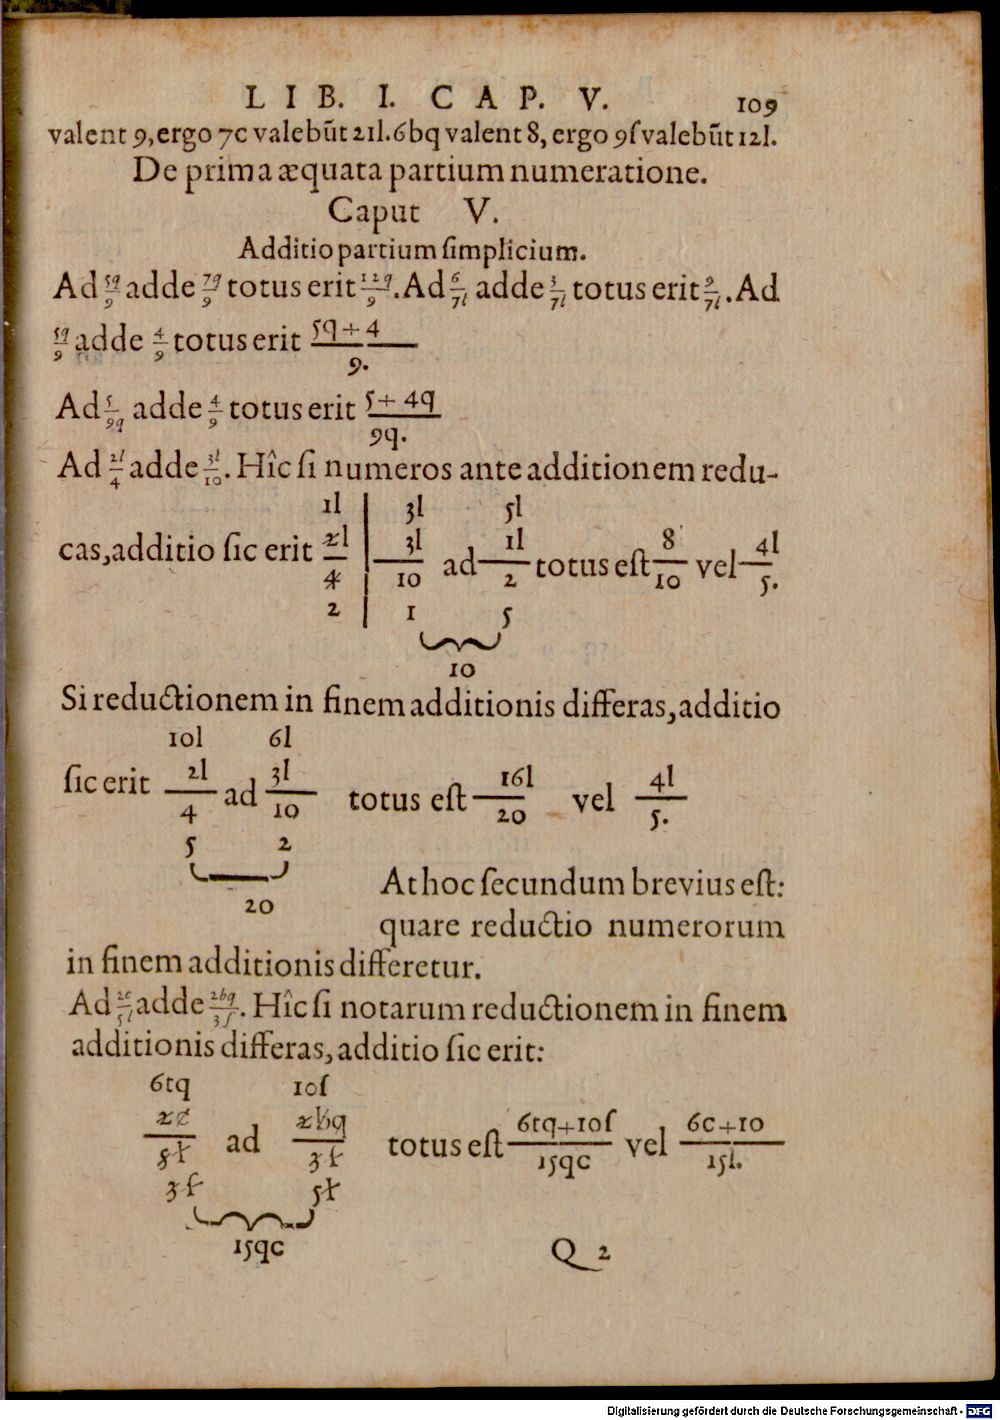 LIB. I. CAP. V. 109
valent 9, ergo 7c valebūt 21l. 6bq valent 8, ergo 9ſ valebūt 12l.
De prima æquata partium numeratione.
Caput V.
Additio partium ſimplicium.
Ad 5q/9 adde 7q/9 totus erit 12q/9. Ad 6/7l adde 3/7l totus erit 9/7l. Ad
5q/9 adde 4/9 totus erit 5q+4
9.
Ad 5/9q adde 4/9 totus erit 5+4q
9q.
Ad 2l/4 adde 3l/10. Hîc ſi numeros ante additionem redu-
1l 3l 5l
cas, additio ſic erit 2l/4 | 3l/10 ad 1l/2 totus eſt 8/10 vel 4l/5.
2 1 5
10
Si reductionem in finem additionis differas, additio
10l 6l
ſic erit 2l/4 ad 3l/10 totus eſt 16l/20 vel 4l/5.
5 2
20
At hoc ſecundum brevius eſt:
quare reductio numerorum
in finem additionis differetur.
Ad 2c/5l adde 2bq/3ſ. Hîc ſi notarum reductionem in finem
additionis differas, additio ſic erit:
6tq 10ſ
2c/5l ad 2bq/3ſ totus eſt 6tq+10ſ/15qc vel 6c+10/15l.
3ſ 5l
15qc
Q 2
Digitalisierung gefördert durch die Deutsche Forschungsgemeinschaft - DFG